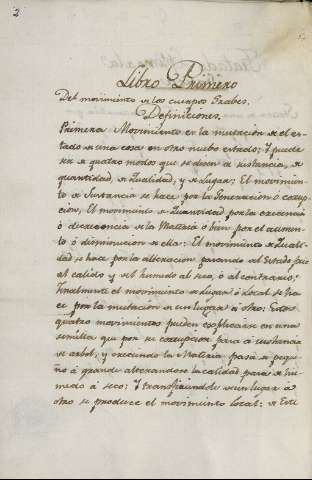 2
Libro Primero
Del movimiento de los cuerpos Grabes.
Definiciones.
Primera. Movimiento es la mutacion de el es-
tado de una cosa en otro nuebo estado; Y puede
ser de quatro modos que se dicen de sustancia, de
quantidad, de qualidad, y de Lugar: El movimien-
to de Sustancia se hace por la Generacion o corup-
cion, El movimiento de Quantidad por la crecencia
ó decrecencia de la Materia ó bien por el aumen-
to ó disminucion de ella: El movimiento de quali-
dad se hace por la alteracion pasando del Estado frio
al calido y del humedo al seco, ó al contrario:
Finalmente el movimiento de Lugar ó Local se ha-
ce por la mutacion de un lugar á otro: Estos
quatro movimientos pueden explicarse en una
semilla que por su corrupcion pasa á sustancia
de arbol, y creciendo la Materia pasa de peque-
ño á grande alterandose la calidad pasa de hu-
medo á seco: Y transfiriendole de un lugar á
otro se produce el movimiento local: de Este